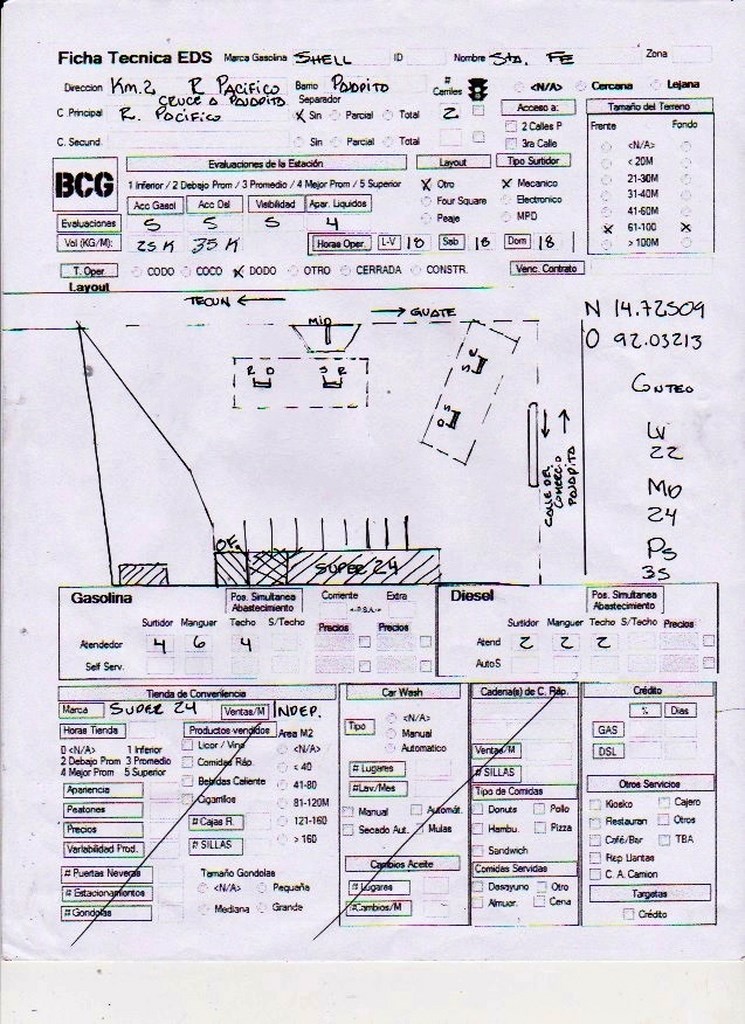 Ficha Tecnica EDS Marca Gasolina SHELL ID Nombre Sta. FE Zona
Direccion Km. 2 R PACIFICO Barrio PAJAPITO # Carriles <N/A> Cercana Lejana
CRUCE A PAJAPITO Separador
C. Principal R. PACIFICO X Sin Parcial Total 2 Acceso a: Tamaño del Terreno
C. Secund. Sin Parcial Total 2 Calles P 3ra Calle Frente Fondo
BCG Evaluaciones de la Estación Layout Tipo Surtidor <N/A>
1 Inferior / 2 Debajo Prom / 3 Promedio / 4 Mejor Prom / 5 Superior X Otro X Mecanico < 20M
Acc Gasol Acc Dsl Visibilidad Apar. Liquidos Four Square Electronico 21-30M
31-40M
Evaluaciones 5 5 5 4 Peaje MPD 41-60M
Vol (KG/M): 25 K 35 K Horas Oper. L-V 18 Sab 18 Dom 18 X 61-100 X
> 100M
T. Oper CODO COCO X DODO OTRO CERRADA CONSTR. Venc. Contrato
Layout
TECUN ← → GUATE
MID
N 14.72509
O 92.03213
R D S R
S
D S
CALLE DEL COMERCIO PAJAPITO
CONTEO
LV
22
MD
24
PS
35
OF.
SUPER 24
Gasolina Pos. Simultanea Abastecimiento Corriente Extra
<-P.S.A->
Surtidor Manguer Techo S/Techo Precios Precios
Atendedor 4 6 4
Self Serv.
Diesel Pos. Simultanea Abastecimiento
Surtidor Manguer Techo S/Techo Precios
Atend 2 2 2
AutoS
Tienda de Conveniencia
Marca SUPER 24 Ventas/M INDEP.
Horas Tienda Productos vendidos Area M2
0 <N/A> 1 Inferior Licor / Vino <N/A>
2 Debajo Prom 3 Promedio Comidas Ráp. < 40
4 Mejor Prom 5 Superior Bebidas Caliente 41-80
Apariencia Cigarrillos 81-120M
Peatones # Cajas R. 121-160
Precios # SILLAS > 160
Variabilidad Prod.
# Puertas Neveras Tamaño Gondolas
# Estacionamientos <N/A> Pequeña
# Gondolas Mediana Grande
Car Wash
Tipo <N/A>
Manual
Automatico
# Lugares
#Lav/Mes
Manual Automát.
Secado Aut. Mulas
Cambios Aceite
# Lugares
#Cambios/M
Cadena(s) de C. Ráp.
Ventas/M
# SILLAS
Tipo de Comidas
Donuts Pollo
Hambu. Pizza
Sandwich
Comidas Servidas
Desayuno Otro
Almuer. Cena
Crédito
% Dias
GAS
DSL
Otros Servicios
Kiosko Cajero
Restauran Otros
Café/Bar TBA
Rep Llantas
C. A. Camion
Targetas
Crédito